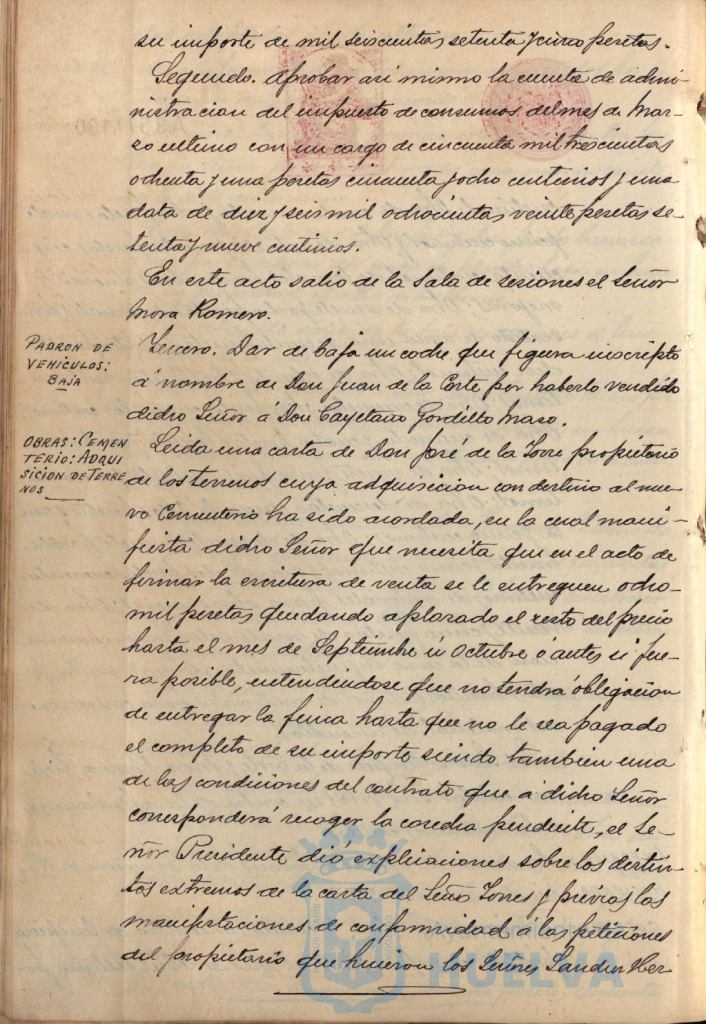 su importe de mil seiscientas setenta y cinco pesetas.
Segundo. Aprobar asi mismo la cuenta de admi-
nistracion del impuesto de consumos del mes de Mar-
zo ultimo con un cargo de cincuenta mil trescientas
ochenta y una pesetas cincuenta y ocho centimos y una
data de diez y seis mil ochocientas veinte pesetas se-
tenta y nueve centimos.
En este acto salio de la Sala de sesiones el Señor
Mora Romero.
PADRON DE
VEHICULOS:
BAJA
Tercero. Dar de baja un coche que figura inscripto
á nombre de Don Juan de la Corte por haberlo vendido
dicho Señor á Don Cayetano Gordillo Maso.
OBRAS: CEMEN
TERIO: ADQUI
SICION DE TERRE
NOS
Leida una carta de Don José de la Torre propietario
de los terrenos cuya adquisicion con destino al nue-
vo Cementerio ha sido acordada, en la cual mani-
fiesta dicho Señor que necesita que en el acto de
firmar la escritura de venta se le entreguen ocho
mil pesetas quedando aplazado el resto del precio
hasta el mes de Septiembre ú Octubre ó antes si fue-
ra posible, entendiendose que no tendrá obligacion
de entregar la finca hasta que no le sea pagado
el completo de su importe siendo tambien una
de las condiciones del contrato que á dicho Señor
corresponderá recoger la cosecha pendiente, el Se-
ñor Presidente dió explicaciones sobre los distin-
tos extremos de la carta del Señor Torres y previas las
manifestaciones de conformidad á las peticiones
del propietario que hicieron los Señores Sanchez Her
HUELVA